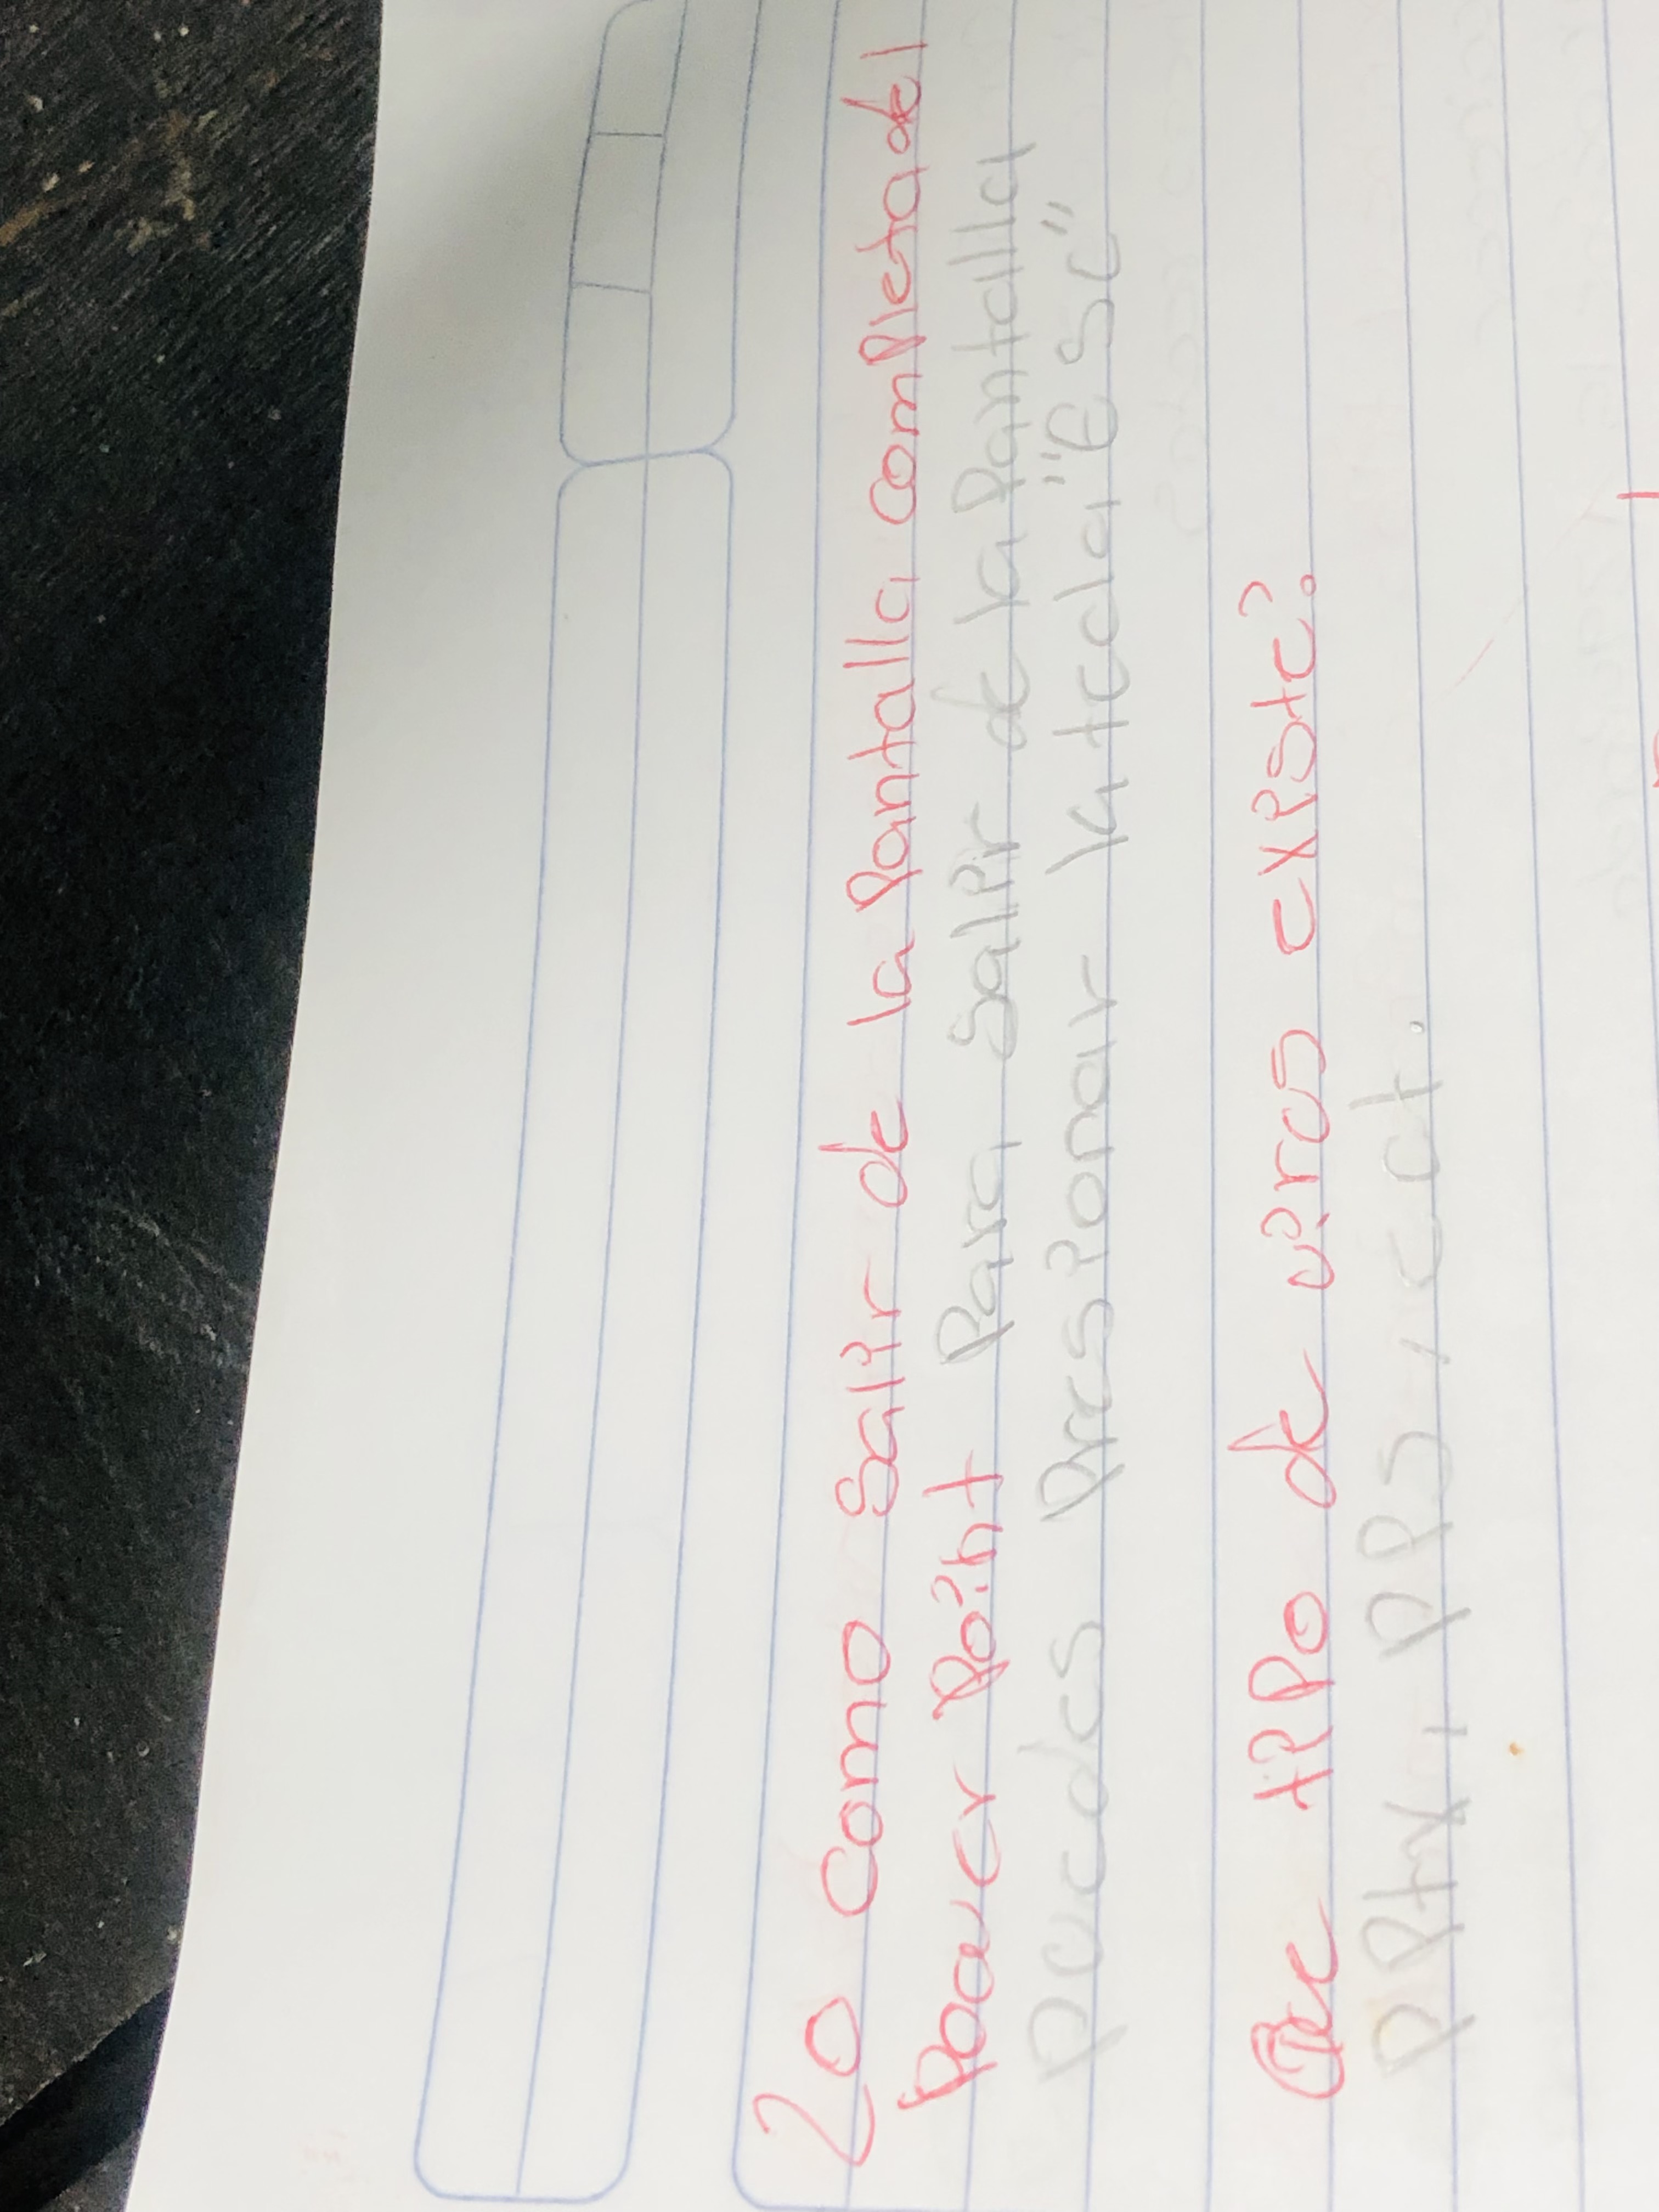 20 Como Salir de la Pantalla completa del
Power Point Para Salir de la Pantallla
Puedes Presionar la tecla "ESC"
Que tipo de viros existe?
PPtx, PPS, ct.